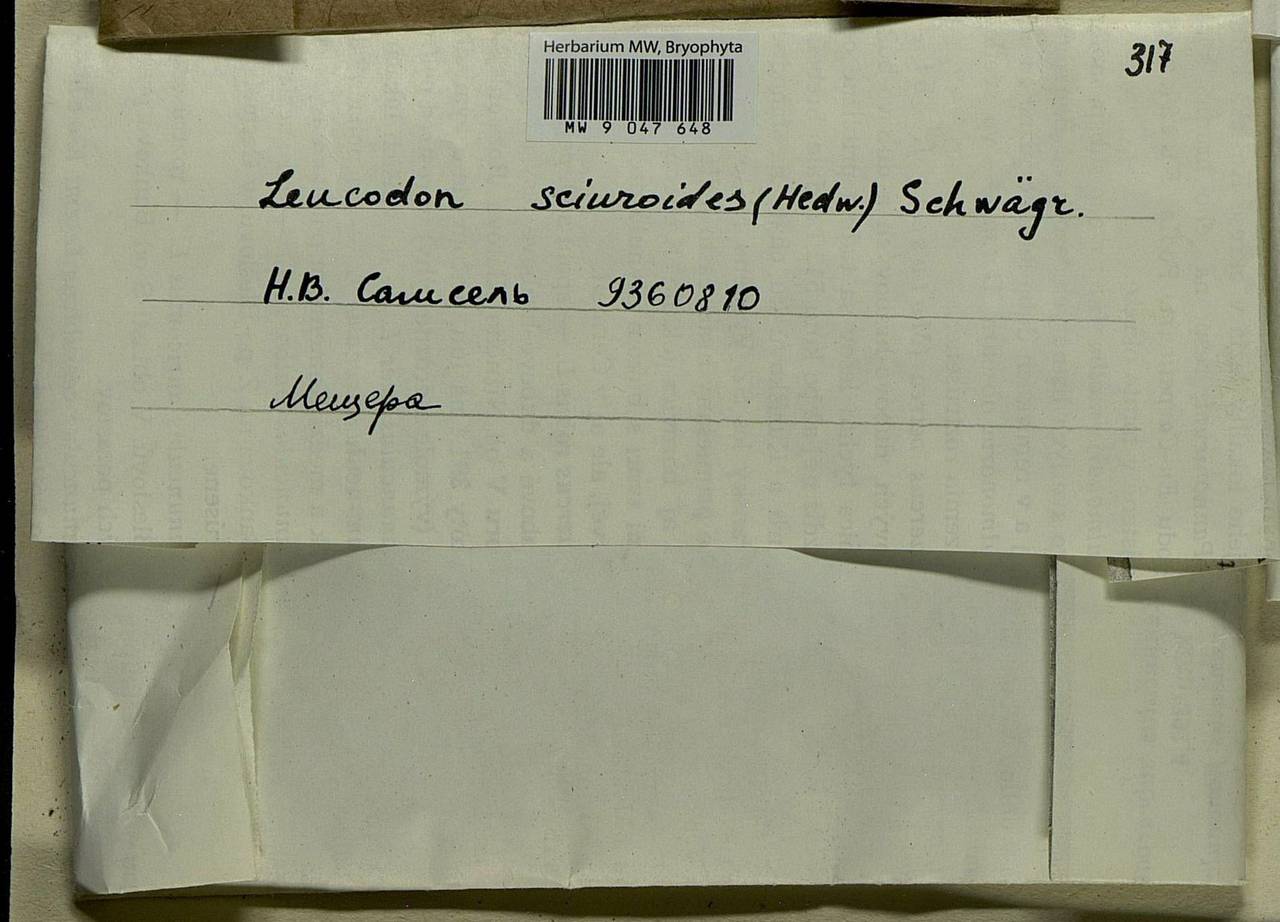 Herbarium MW, Bryophyta
317
MW 9 047 648
Leucodon sciuroides (Hedw.) Schwägr.
Н.В. Самсель 9360810
Мещера